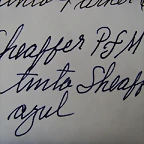 Sheaffer PFM
tinta Sheaff
azul